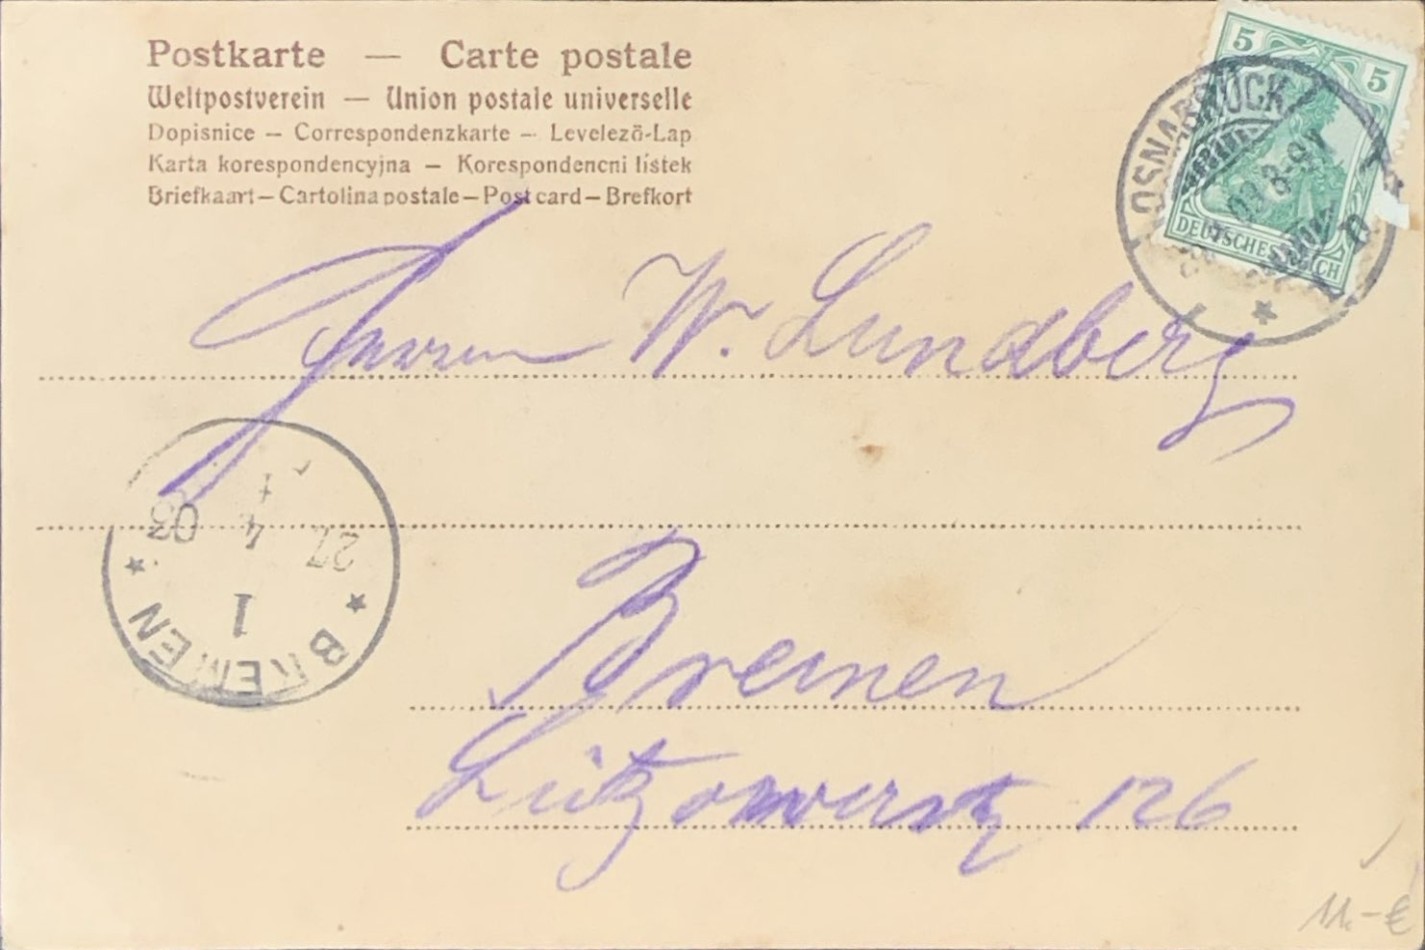 Postkarte — Carte postale
Weltpostverein — Union postale universelle
Dopisnice — Correspondenzkarte — Levelező-Lap
Karta korespondencyjna — Korespondencni listek
Briefkaart — Cartolina postale — Post card — Brefkort
5 5
DEUTSCHES REICH
OSNABRÜCK
8-9V
Herrn W. Lundberg
27. 4 03
1
BREMEN
Bremen
Lützowerstr 126
11.-€